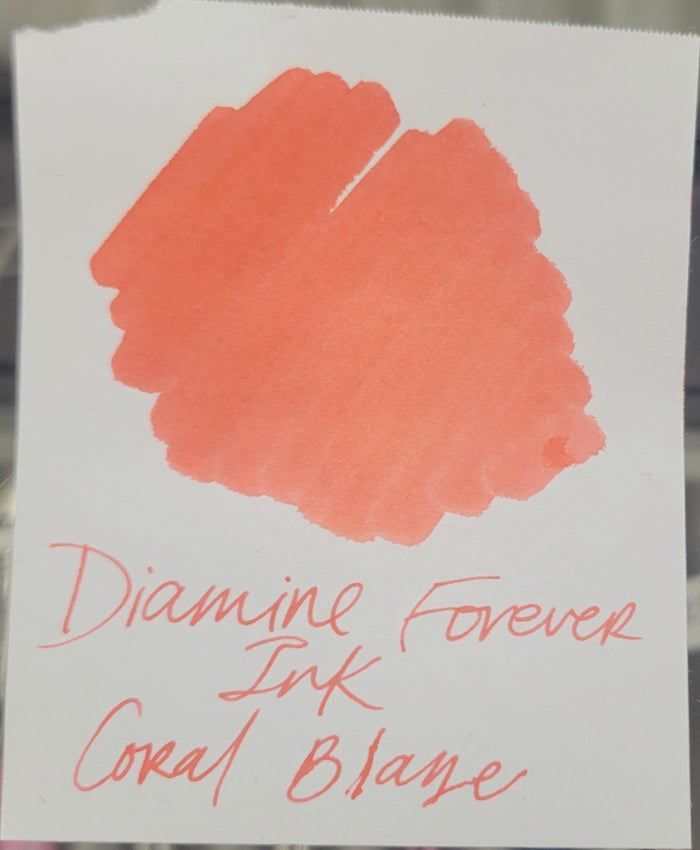 Diamine Forever
Ink
Coral Blaze